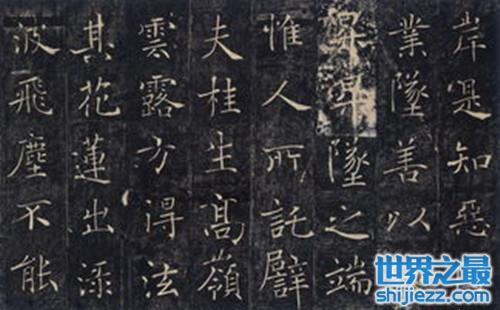 岸是知惡
業墜善以
昇昇墜之端
惟人所託譬
夫桂生髙嶺
雲露方得泫
其花蓮出淥
波飛塵不能
世界之最
shijiezz.com